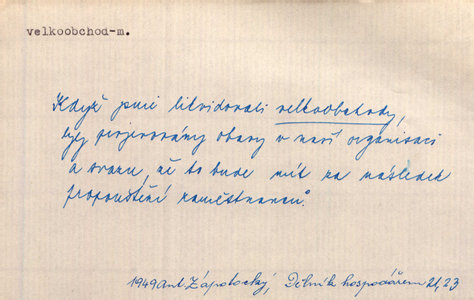 velkoobchod-m.
Když jsme likvidovali velkoobchody,
byly projevovány obavy v naší organisaci
a svazu, že to bude mít za následek
propouštění zaměstnanců.
1949 Ant. Zápotocký, Dělník hospodářem 21, 23